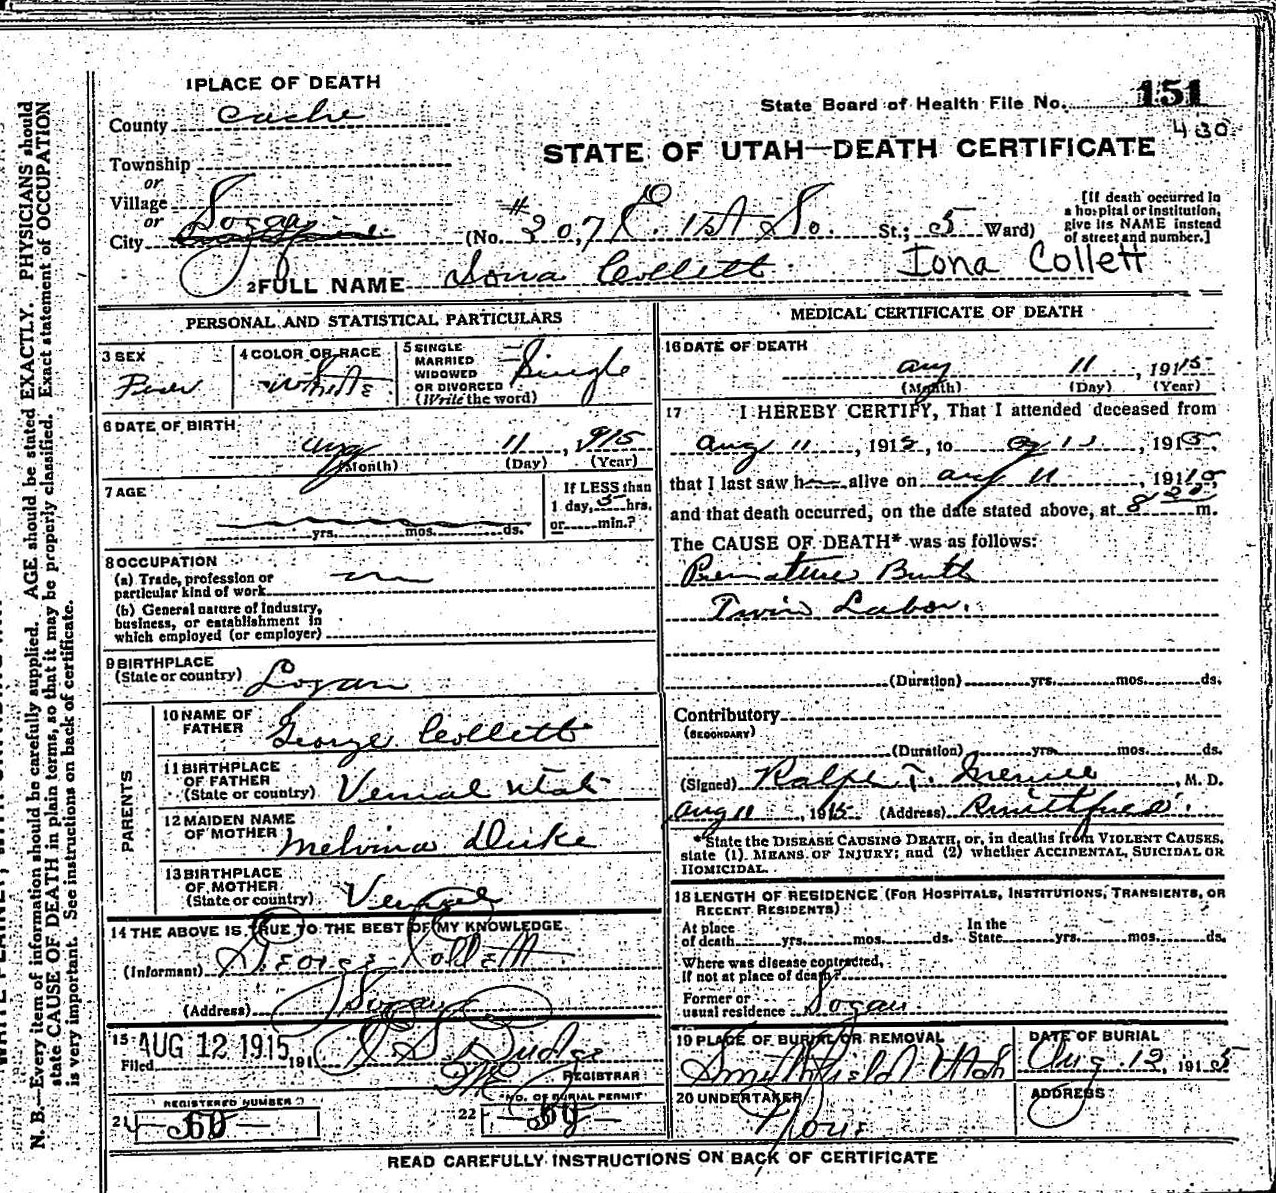 1 PLACE OF DEATH
County Cache
Township
or
Village
or
City Logan
State Board of Health File No. 151
430
STATE OF UTAH—DEATH CERTIFICATE
(No. #307 E. 1st So. St.; 5 Ward)
[If death occurred in
a hospital or institution,
give its NAME instead
of street and number.]
2 FULL NAME Iona Collett
Iona Collett
PERSONAL AND STATISTICAL PARTICULARS
3 SEX
4 COLOR OR RACE White
5 SINGLE
MARRIED
WIDOWED
OR DIVORCED
(Write the word)
Single
6 DATE OF BIRTH
Aug 11, 1915
(Month) (Day) (Year)
7 AGE
yrs. mos. ds.
If LESS than
1 day, 5 hrs.
or min.?
8 OCCUPATION
(a) Trade, profession or
particular kind of work
(b) General nature of Industry,
business, or establishment in
which employed (or employer)
9 BIRTHPLACE
(State or country) Logan
PARENTS
10 NAME OF
FATHER George Collett
11 BIRTHPLACE
OF FATHER
(State or country) Vernal Utah
12 MAIDEN NAME
OF MOTHER Melvina
13 BIRTHPLACE
OF MOTHER
(State or country) Vernal
14 THE ABOVE IS TRUE TO THE BEST OF MY KNOWLEDGE
(Informant) George Collett
(Address) Logan
15 AUG 12 1915
Filed 191
REGISTRAR
REGISTERED NUMBER
21 60
NO. OF BURIAL PERMIT
22 59
MEDICAL CERTIFICATE OF DEATH
16 DATE OF DEATH
Aug 11, 1915
(Month) (Day) (Year)
17 I HEREBY CERTIFY, That I attended deceased from
Aug 11, 1915, to Aug 11, 1915
that I last saw h alive on Aug 11, 1915
and that death occurred, on the date stated above, at 8 30 m.
The CAUSE OF DEATH* was as follows:
Premature Birth
Twin Labor.
(Duration) yrs. mos. ds.
Contributory
(SECONDARY)
(Duration) yrs. mos. ds.
(Signed) Ralph T. Merrill, M. D.
Aug 11, 1915 (Address) Smithfield.
*State the DISEASE CAUSING DEATH, or, in deaths from VIOLENT CAUSES,
state (1) MEANS OF INJURY; and (2) whether ACCIDENTAL, SUICIDAL OR
HOMICIDAL.
18 LENGTH OF RESIDENCE (FOR HOSPITALS, INSTITUTIONS, TRANSIENTS, OR
RECENT RESIDENTS)
At place
of death yrs. mos. ds.
In the
State yrs. mos. ds.
Where was disease contracted,
If not at place of death?
Former or
usual residence Logan
19 PLACE OF BURIAL OR REMOVAL
Smithfield Utah
DATE OF BURIAL
Aug. 12, 1915
20 UNDERTAKER
None
ADDRESS
READ CAREFULLY INSTRUCTIONS ON BACK OF CERTIFICATE
N. B.—Every item of information should be carefully supplied. AGE should be stated EXACTLY. PHYSICIANS should
state CAUSE OF DEATH in plain terms, so that it may be properly classified. Exact statement of OCCUPATION
is very important. See instructions on back of certificate.